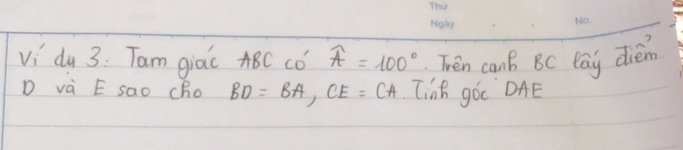 Thứ
Ngày No.
Ví dụ 3: Tam giác ABC có Â = 100°. Trên cạnh BC lấy điểm
D và E sao cho BD = BA, CE = CA. Tính góc DAE